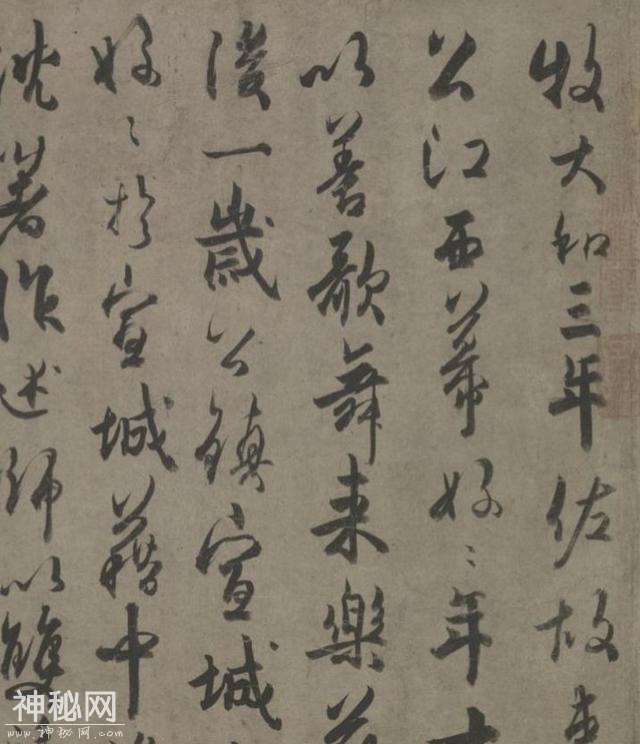 牧大和三年佐故
公江西幕好〻年十
以善歌舞来樂
後一歲公鎮宣城
好〻於宣城籍中
沈著作述師以雙
神秘网
www.神秘网.com